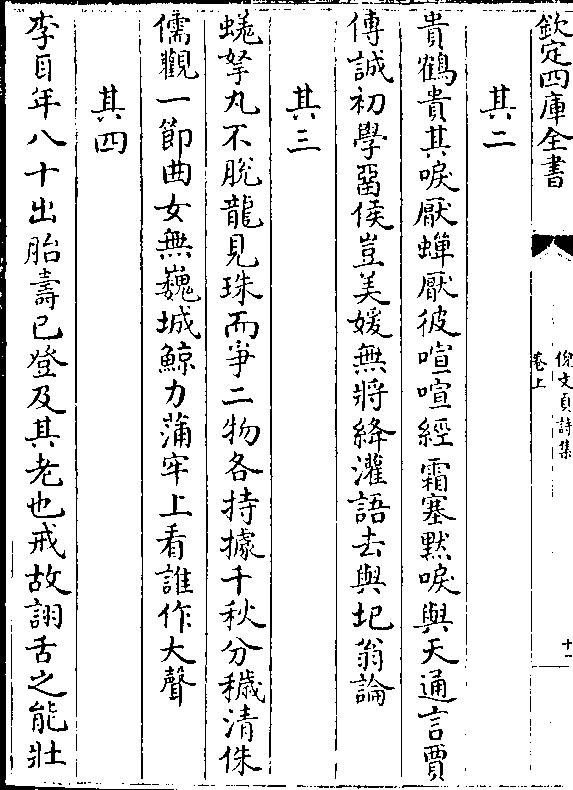 欽定四庫全書
倪文貞詩集
卷上
十一
其二
貴鶴貴其唳厭蟬厭彼喧喧經霜塞默唳與天通言賈
傅誠初學留侯豈美媛無將絳灌語去與圯翁論
其三
蜣拏丸不脫龍見珠而爭二物各持據千秋分穢清侏
儒觀一節曲女無巍城鯨力蒲牢上看誰作大聲
其四
李耳年八十出胎壽已登及其老也戒故詡舌之能壯